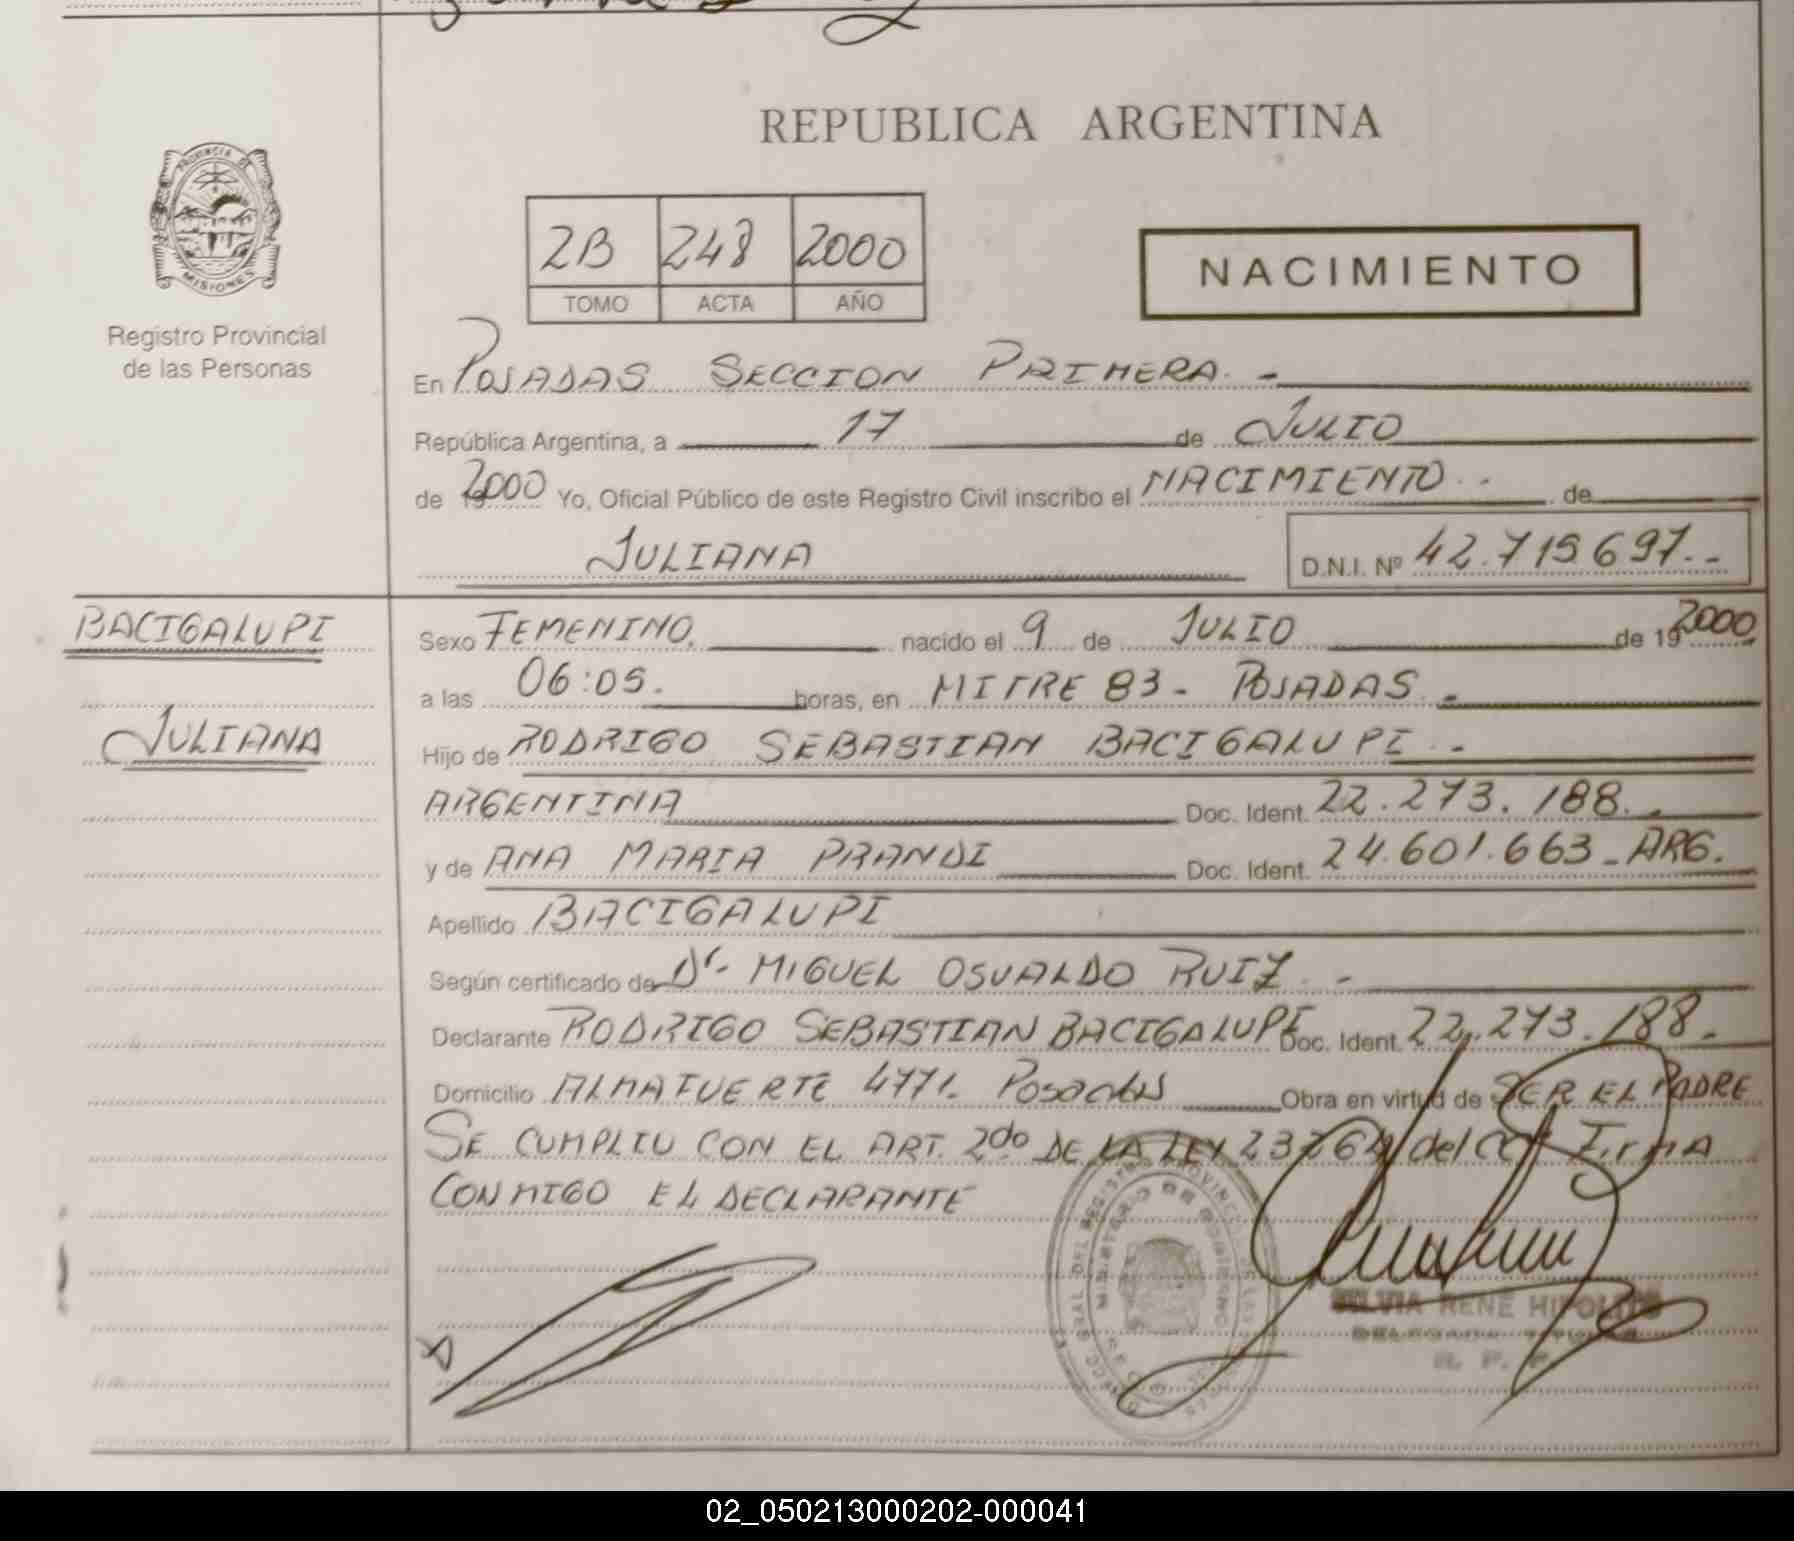 REPUBLICA ARGENTINA
PROVINCIA DE
MISIONES
Registro Provincial
de las Personas
2B 248 2000
TOMO ACTA AÑO
NACIMIENTO
En POSADAS SECCION PRIMERA. -
República Argentina, a 17 de JULIO
de 2000 Yo, Oficial Público de este Registro Civil inscribo el NACIMIENTO.. de
JULIANA D.N.I. Nº 42.715697.-
BACIGALUPI
JULIANA
Sexo FEMENINO. nacido el 9 de JULIO de 19 2000.
a las 06:05. horas, en MITRE 83 - POSADAS. -
Hijo de RODRIGO SEBASTIAN BACIGALUPI. -
ARGENTINA Doc. Ident. 22.273.188. -
y de ANA MARIA PRANDI Doc. Ident. 24.601.663 - ARG.
Apellido BACIGALUPI
Según certificado de Dr- MIGUEL OSVALDO RUIZ. -
Declarante RODRIGO SEBASTIAN BACIGALUPI Doc. Ident. 22.273.188.-
Domicilio ALMAFUERTE 4771. Posadas Obra en virtud de SER EL PADRE
SE CUMPLIU CON EL ART. 2do DE LA LEY 23264 del FIRMA
CONMIGO EL DECLARANTE
MINISTERIO DE GOBIERNO
SILVIA RENE HIPOLITO
R. P. P.
02_050213000202-000041